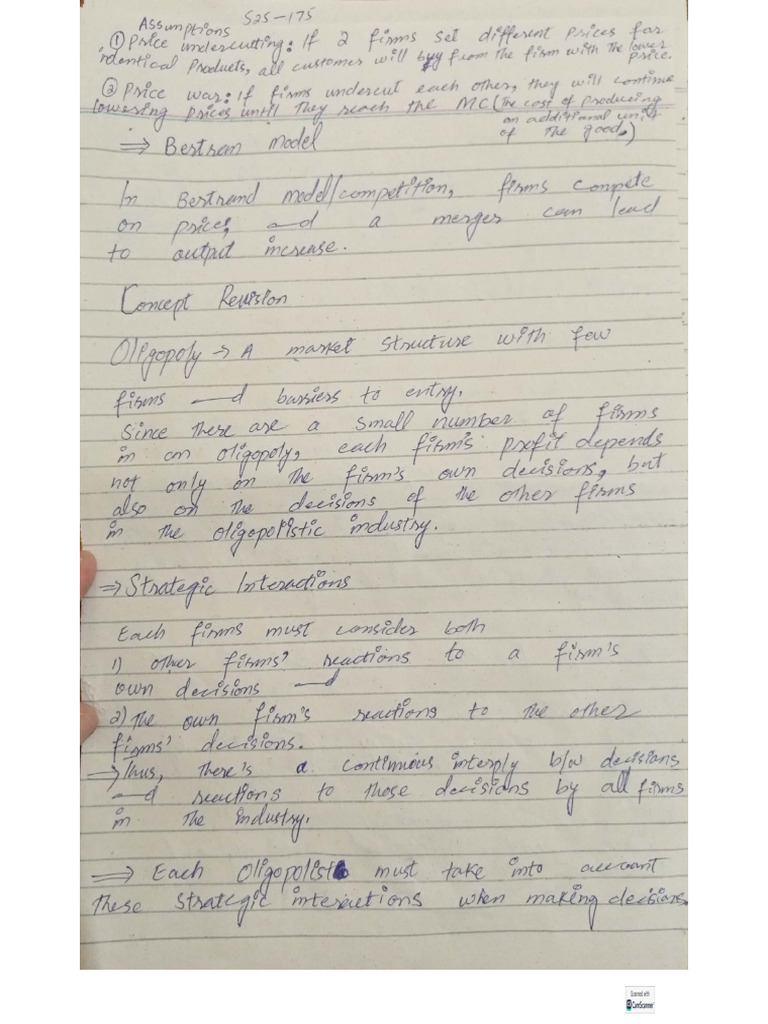 Assumptions S25-175
① Price undercutting: If 2 firms set different prices for
identical products, all customer will buy from the firm with the lower
price.
② Price war: If firms undercut each other, they will continue
lowering prices until they reach the MC (The cost of producing
an additional unit
of the good.)
⇒ Bertran model
In Bertrand model/competition, firms compete
on price, and a merger can lead
to output increase.
Concept Revision
Oligopoly → A market structure with few
firms and barriers to entry.
Since there are a small number of firms
in an oligopoly, each firm's profit depends
not only on the firm's own decisions, but
also on the decisions of the other firms
in the oligopolistic industry.
⇒ Strategic Interactions
Each firms must consider both
1) other firms' reactions to a firm's
own decisions and
2) The own firm's reactions to the other
firms' decisions.
→ Thus, there's a continuous interply b/w decisions
and reactions to those decisions by all firms
in the industry.
⇒ Each Oligopolist must take into account
these strategic interactions when making decisions.
Scanned with
CamScanner